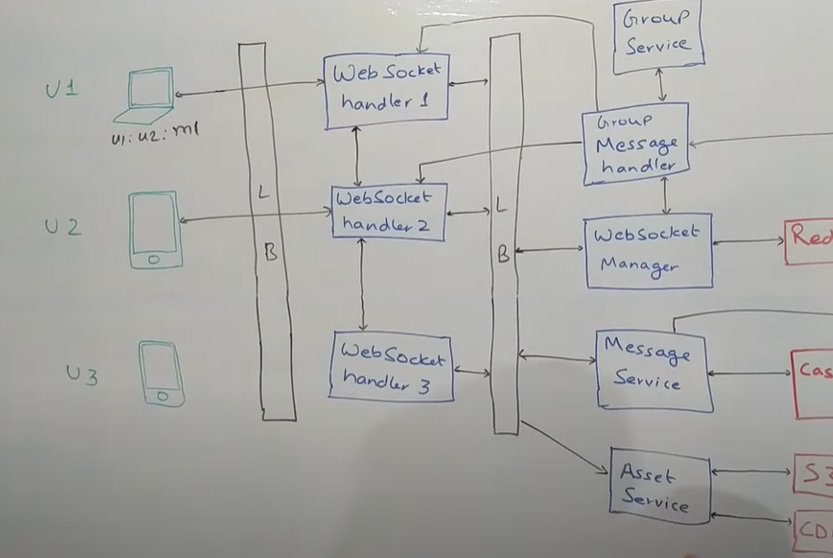 U1
U1: U2: m1
U2
U3
L
B
WebSocket
handler 1
WebSocket
handler 2
WebSocket
handler 3
L
B
Group
Service
Group
Message
handler
WebSocket
Manager
Message
Service
Asset
Service
Red
Cas
S3
CD